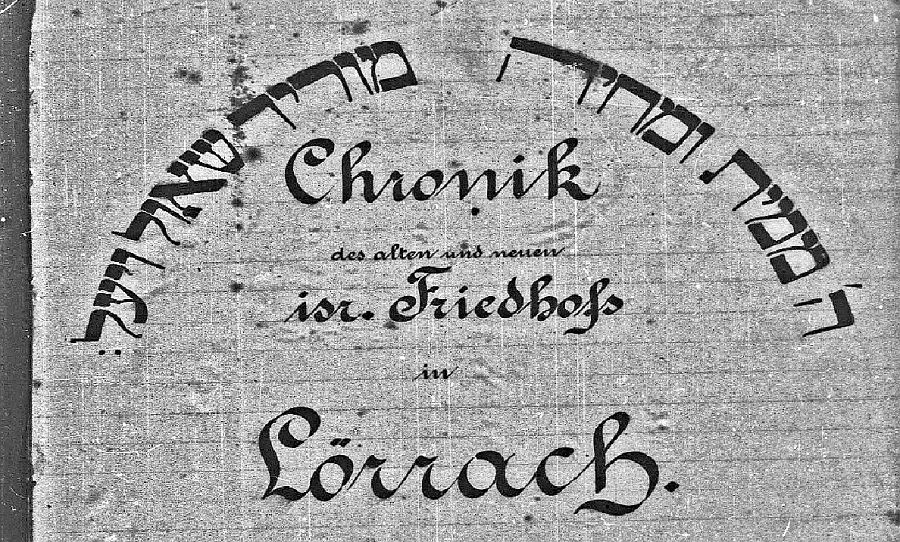 ה' ממית ומחיה מוריד שאול ויעל:
Chronik
des alten und neuen
isr. Friedhofs
in
Lörrach.